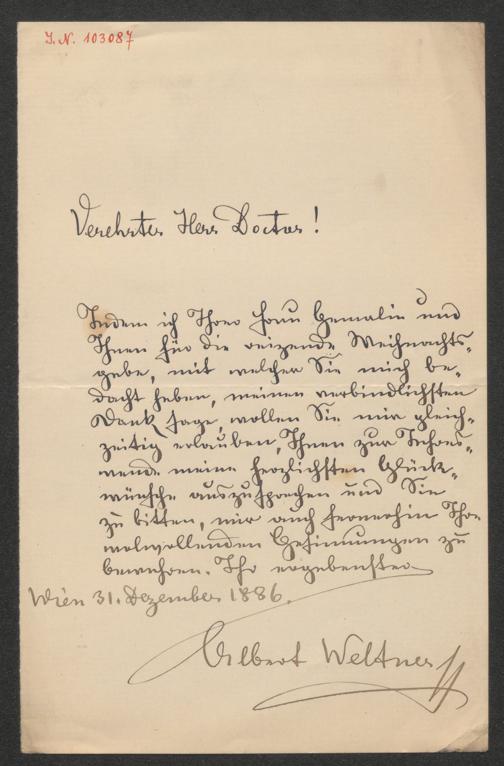 J.N. 103087
Verehrter Herr Doctor!
Indem ich Ihrer Frau Gemalin und
Ihnen für die reizende Weihnachts-
gabe, mit welcher Sie mich be-
dacht haben, meinen verbindlichsten
Dank sage, wollen Sie mir gleich-
zeitig erlauben, Ihnen zur Jahres-
wende meine herzlichsten Glück-
wünsche auszusprechen und Sie
zu bitten, mir auch fernerhin Ihre
wolwollenden Gesinnungen zu
bewahren. Ihr ergebenster
Wien 31. Dezember 1886.
Albert Weltner